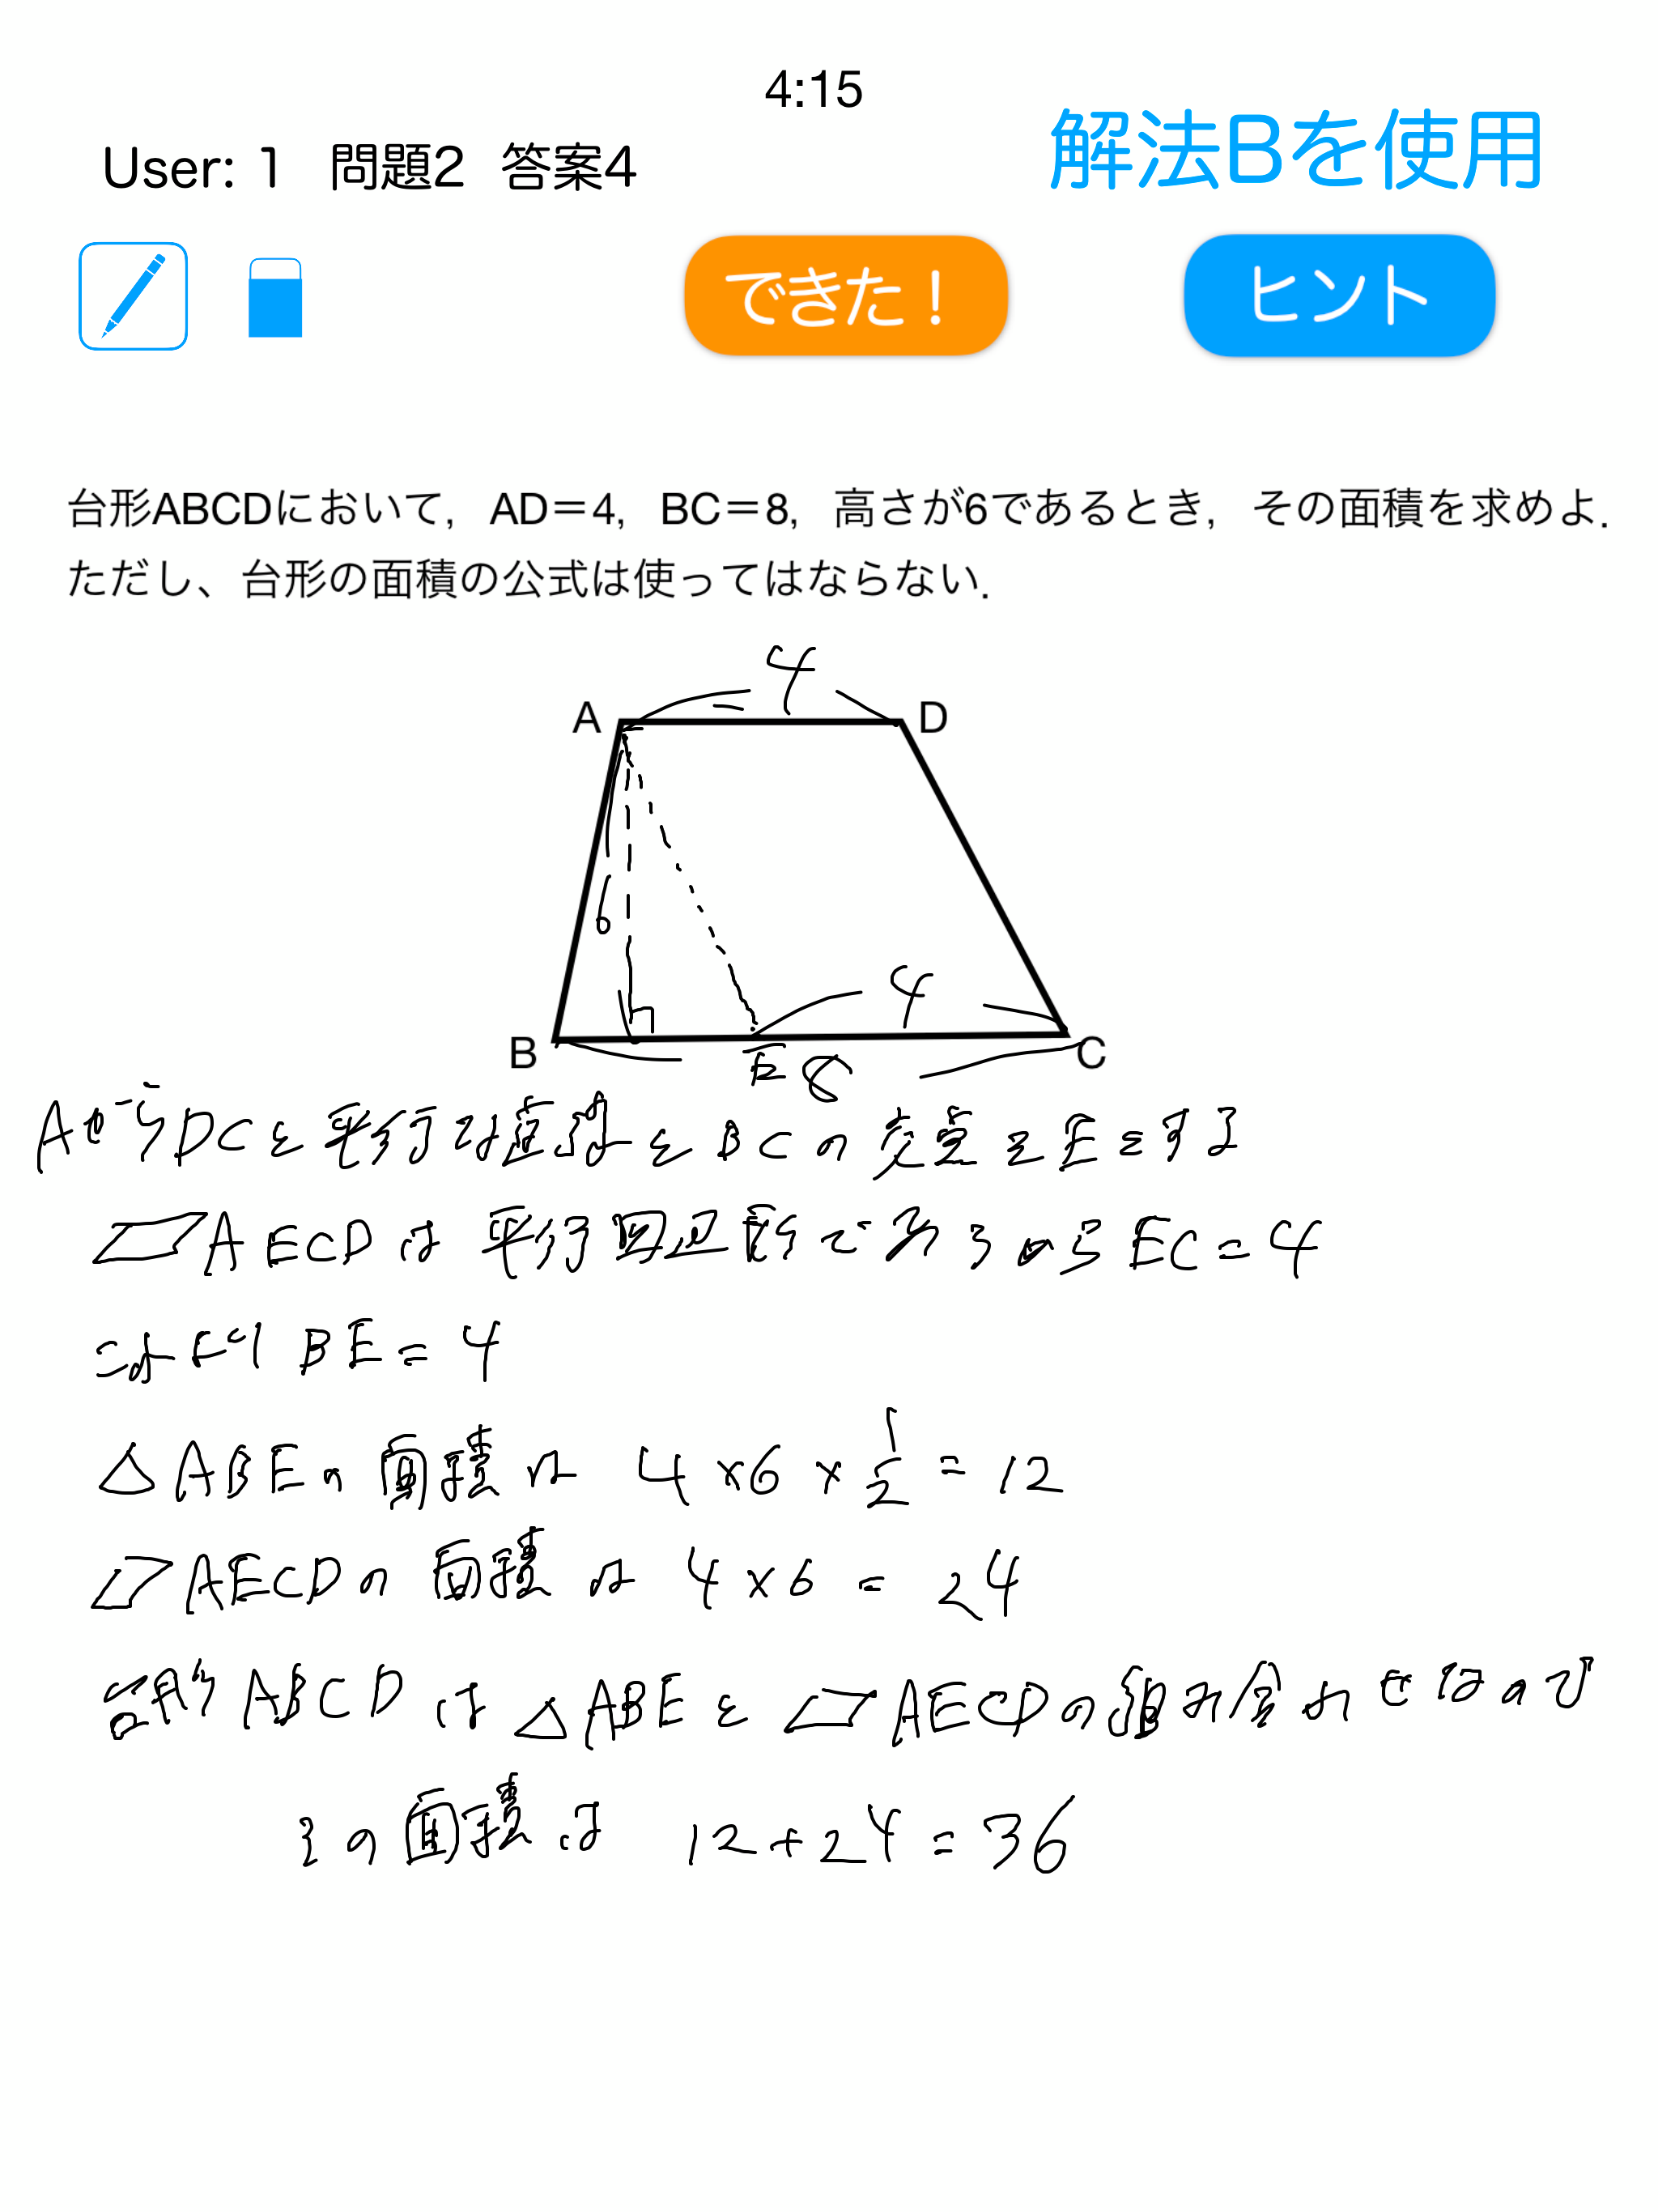 4:15
User: 1 問題2 答案4
解法Bを使用
できた！
ヒント
台形ABCDにおいて，AD＝4，BC＝8，高さが6であるとき，その面積を求めよ．
ただし、台形の面積の公式は使ってはならない．
4
A
D
6
4
B
E
8
C
AからDCと平行な直線とBCの交点をEとする
▱AECDは平行四辺形であるからEC=4
これよりBE=4
△ABEの面積は 4×6×1/2=12
▱AECDの面積は 4×6=24
台形ABCDは△ABEと▱AECDの組み合わせなので
その面積は 12+24=36